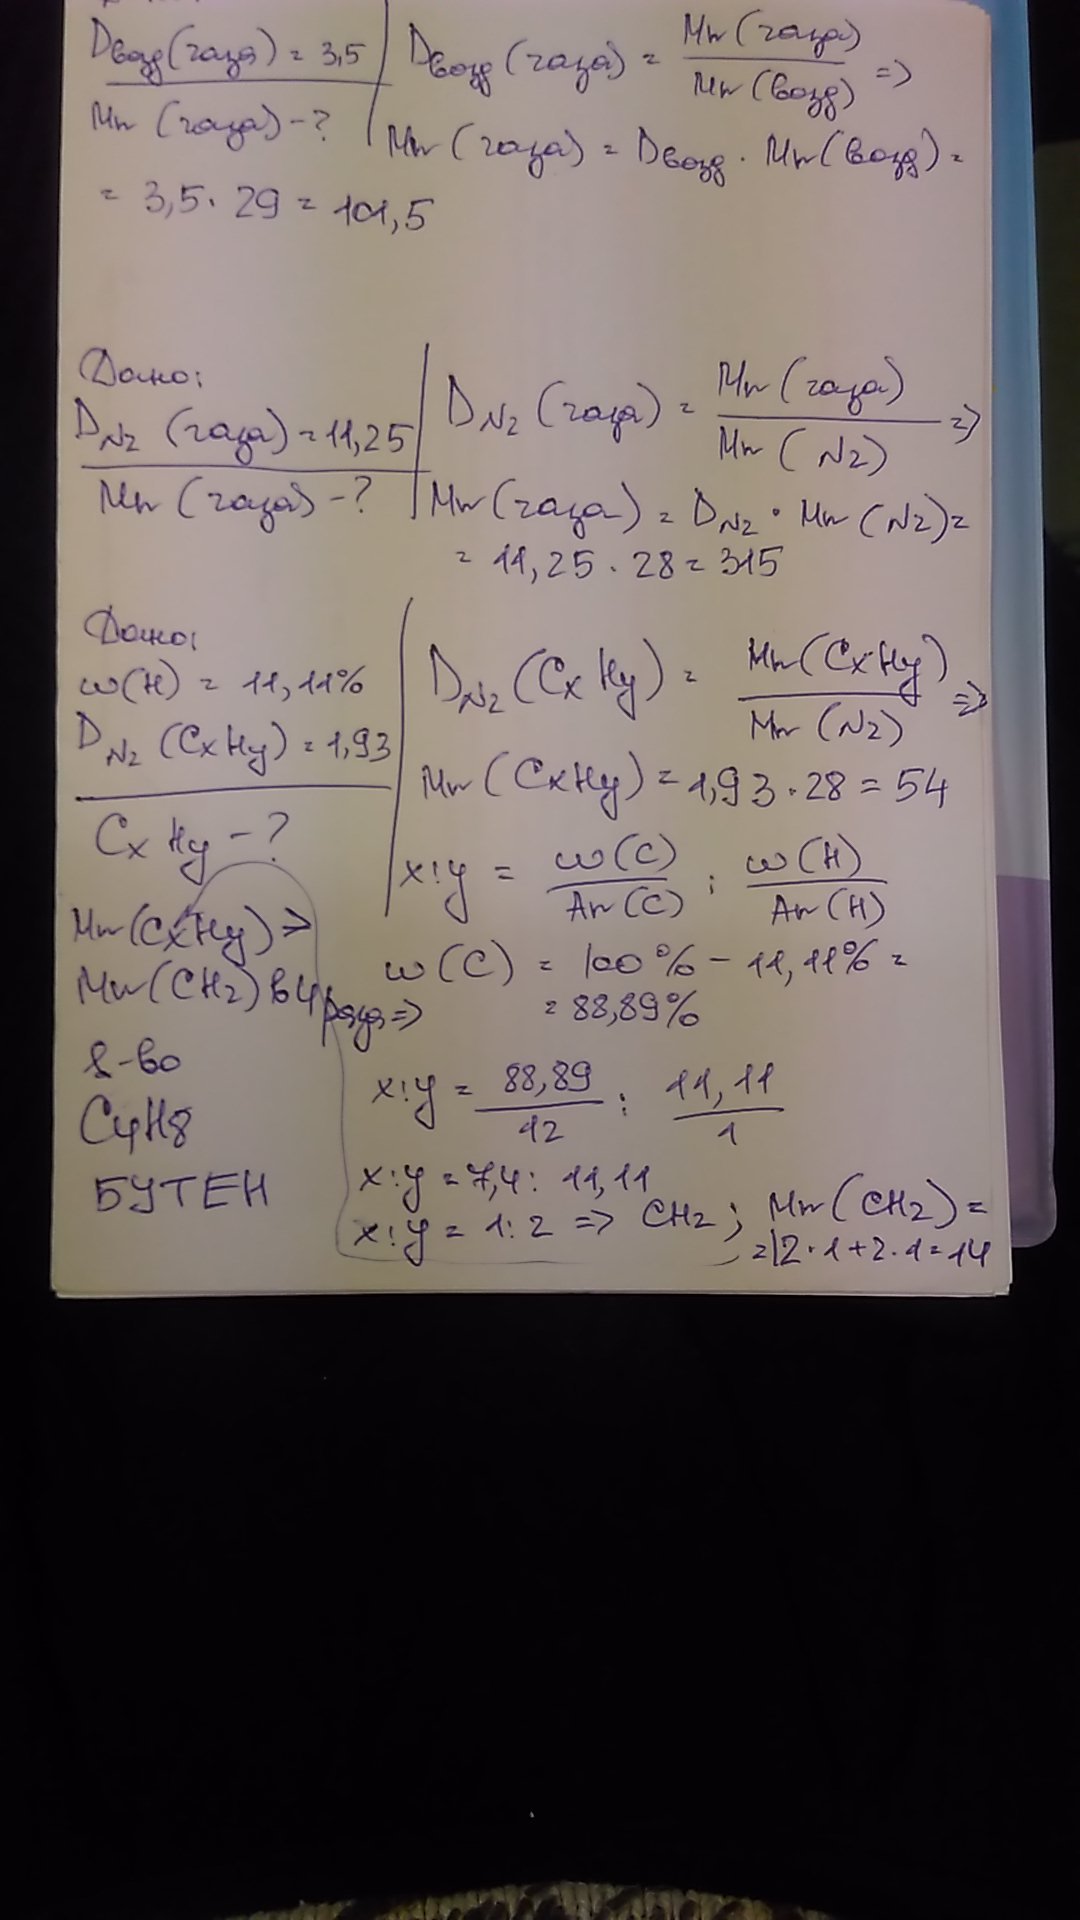 Dвозд(газа) = 3,5
Mr (газа) - ?
Dвозд (газа) = Mr (газа) / Mr (возд) =>
Mr (газа) = Dвозд · Mr (возд) =
= 3,5 · 29 = 101,5
Дано:
DN2 (газа) = 11,25
Mr (газа) - ?
DN2 (газа) = Mr (газа) / Mr (N2) =>
Mr (газа) = DN2 · Mr (N2) =
= 11,25 · 28 = 315
Дано:
ω(H) = 11,11%
DN2 (CxHy) = 1,93
CxHy - ?
DN2 (CxHy) = Mr (CxHy) / Mr (N2) =>
Mr (CxHy) = 1,93 · 28 = 54
x:y = ω(C) / Ar (C) : ω(H) / Ar (H)
ω(C) = 100% - 11,11% =
= 88,89%
x:y = 88,89 / 12 : 11,11 / 1
x:y = 7,4 : 11,11
x:y = 1:2 => CH2; Mr (CH2) =
= 12·1+2·1=14
Mr (CxHy) >
Mr (CH2) в 4 раза =>
в-во
C4H8
БУТЕН